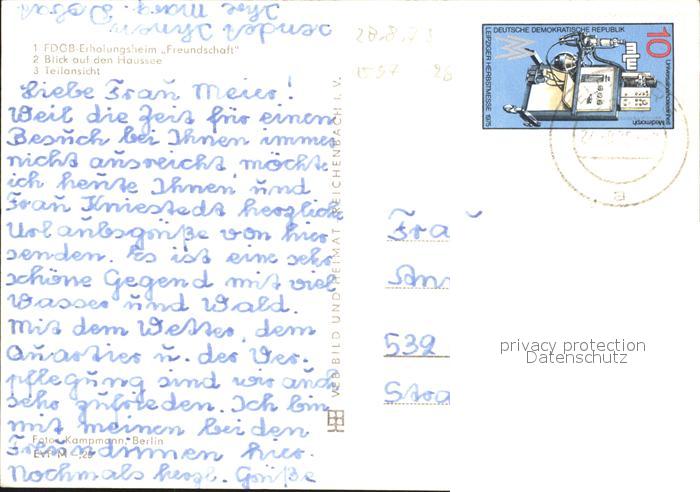 1 FDGB-Erholungsheim „Freundschaft"
2 Blick auf den Haussee
3 Teilansicht
Liebe Frau Meier!
Weil die Zeit für einen
Besuch bei Ihnen immer
nicht ausreicht, möchte
ich heute Ihnen und
Frau Kniestedt herzliche
Urlaubsgrüße von hier
senden. Es ist eine sehr
schöne Gegend mit viel
Wasser und Wald.
Mit dem Wetter, dem
Quartier u. der Ver-
pflegung sind wir auch
sehr zufrieden. Ich bin
mit meinen beiden
Freundinnen hier.
Nochmals herzl. Grüße
sendet Ihnen
Ihre Marg.
Foto: Kampmann, Berlin
EVP M -,25
VEB BILD UND HEIMAT REICHENBACH i. V.
DEUTSCHE DEMOKRATISCHE REPUBLIK
LEIPZIGER HERBSTMESSE 1975
10
Medimorph
Frau
539
Stra
privacy protection
Datenschutz